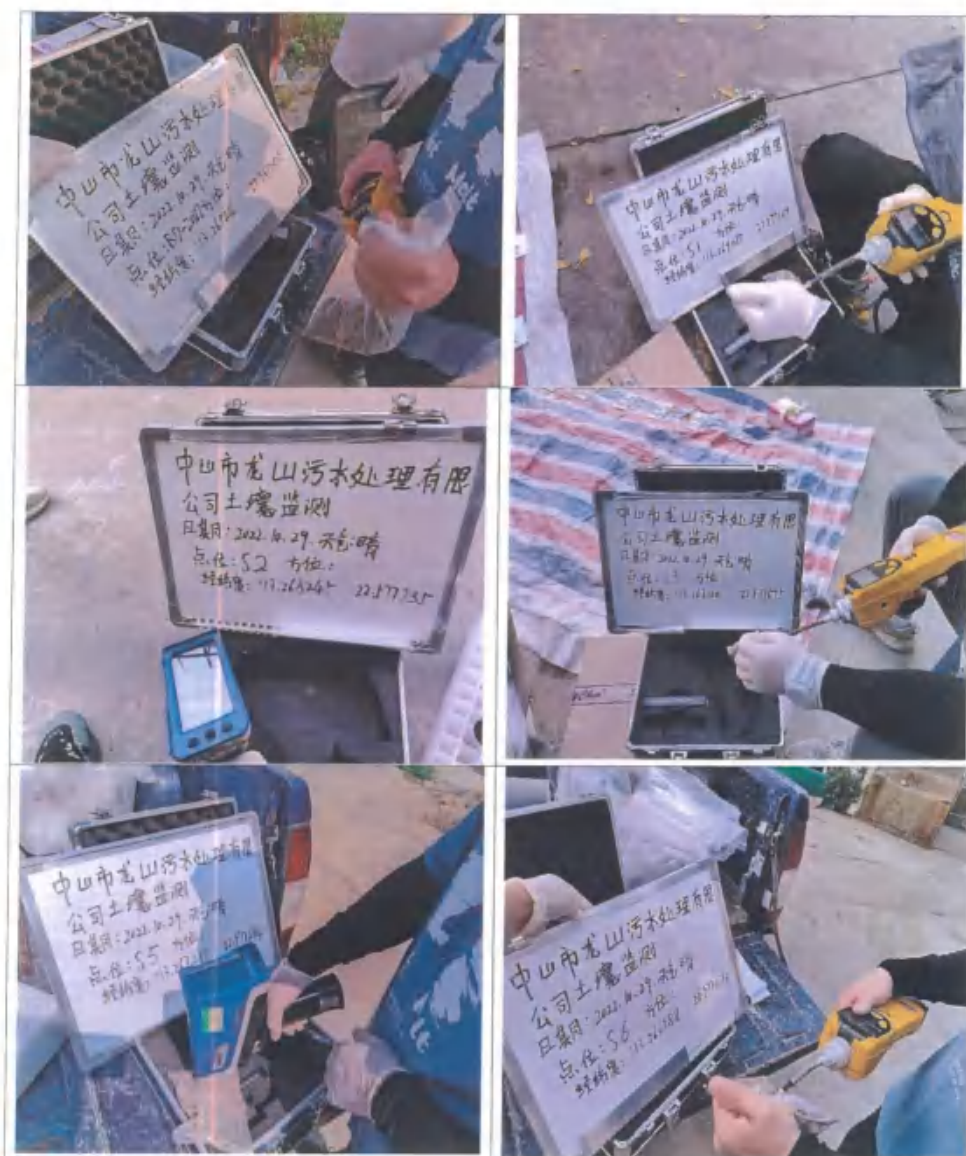 中山市龙山污水处理
公司土壤监测
日期:2022.10.29.天气:晴
点位:
经纬度:
中山市龙山污水处理有限
公司土壤监测
日期:2022.10.29.天气:晴
点位:S1 方位:
经纬度:
中山市龙山污水处理有限
公司土壤监测
日期:2022.10.29.天气:晴
点位:S2 方位:
经纬度:113.265245 22.577735
中山市龙山污水处理有限
公司土壤监测
日期:2022.10.29.天气:晴
点位: 方位
经纬度:
中山市龙山污水处理有限
公司土壤监测
日期:2022.10.29.天气:晴
点位:S5 方位:
经纬度:
中山市龙山污水处理有限
公司土壤监测
日期:2022.10.29.天气:晴
点位:S6 方位:
经纬度: